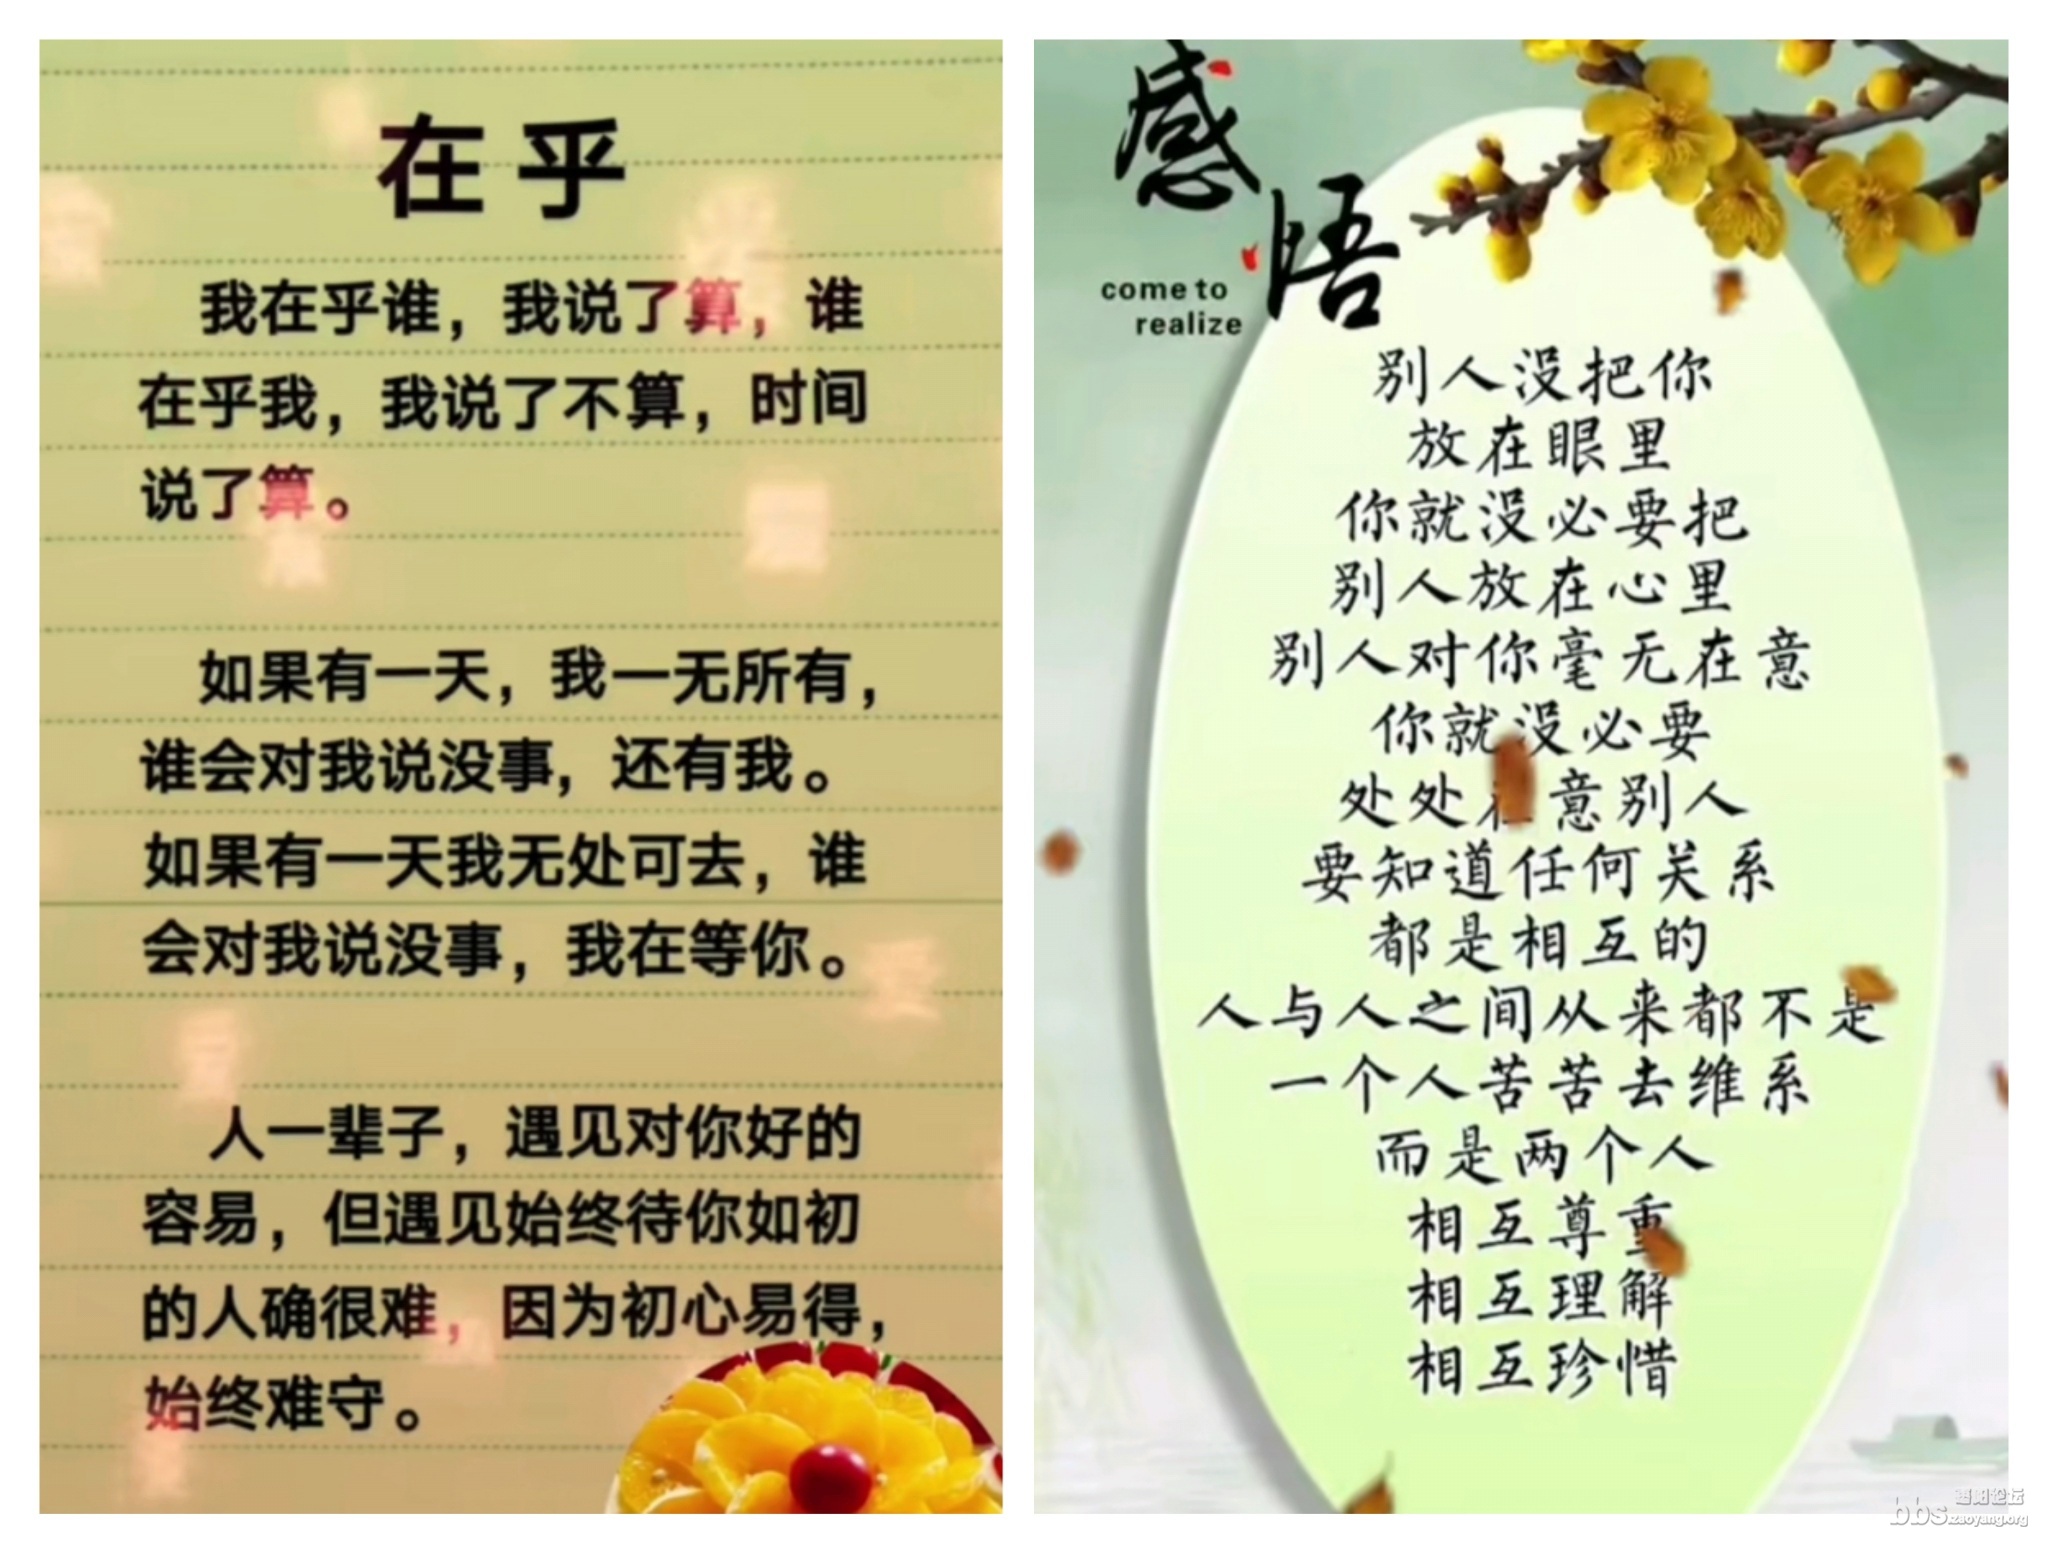 在乎
我在乎谁，我说了算，谁
在乎我，我说了不算，时间
说了算。
如果有一天，我一无所有，
谁会对我说没事，还有我。
如果有一天我无处可去，谁
会对我说没事，我在等你。
人一辈子，遇见对你好的
容易，但遇见始终待你如初
的人确很难，因为初心易得，
始终难守。
感悟
come to
realize
别人没把你
放在眼里
你就没必要把
别人放在心里
别人对你毫无在意
你就没必要
处处在意别人
要知道任何关系
都是相互的
人与人之间从来都不是
一个人苦苦去维系
而是两个人
相互尊重
相互理解
相互珍惜
bbs.zaoyang.org